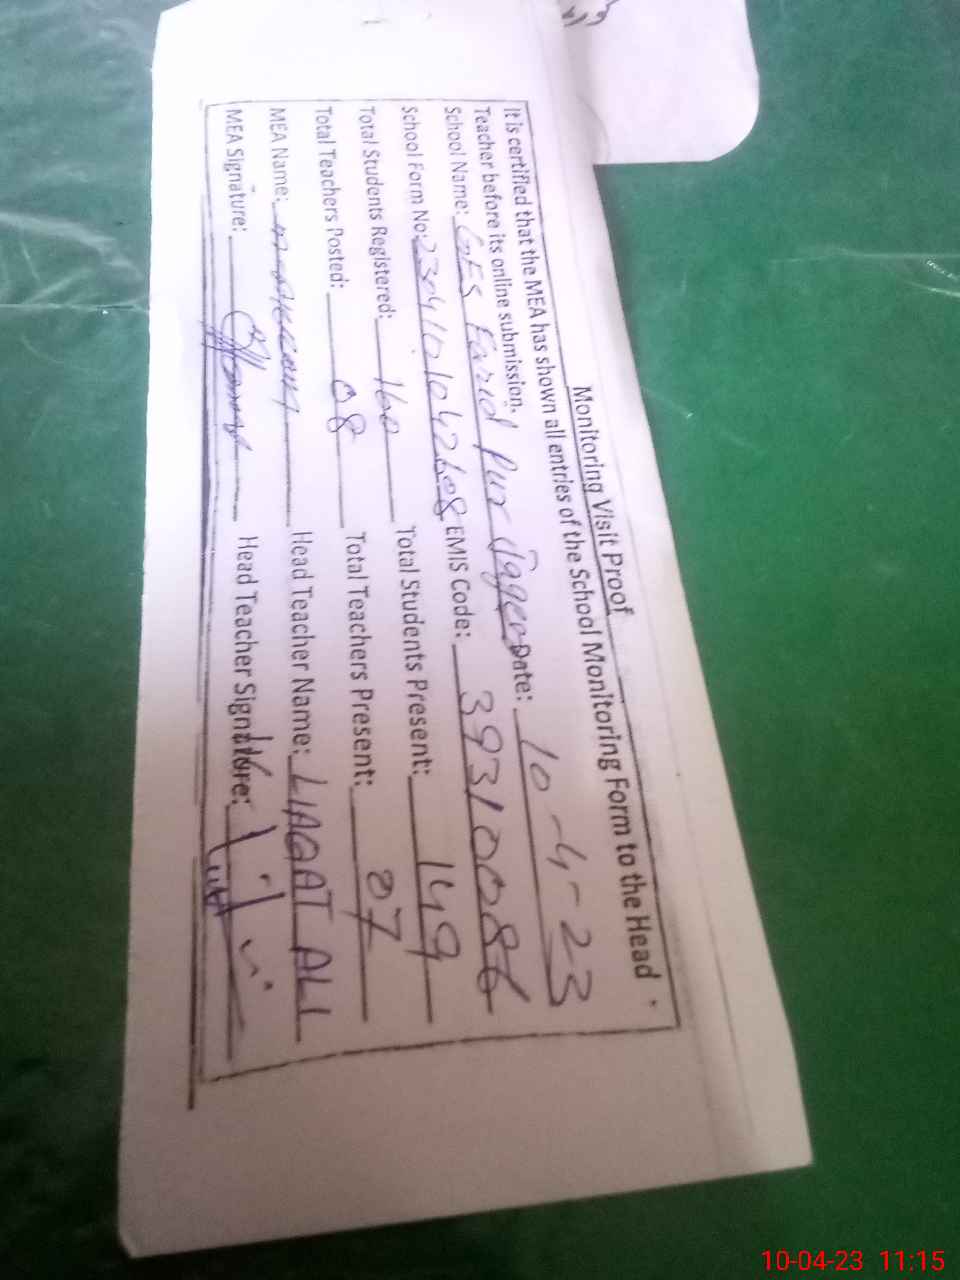 Monitoring Visit Proof
It is certified that the MEA has shown all entries of the School Monitoring Form to the Head
Teacher before its online submission. Date: 10-4-23
School Name: GES Farid Pur Jageer
School Form No: 2304101042608 EMIS Code: 39310086
Total Students Registered: 160 Total Students Present: 149
Total Teachers Posted: 08 Total Teachers Present: 07
MEA Name: Head Teacher Name: LIAQAT ALI
MEA Signature: Head Teacher Signature:
10-04-23 11:15